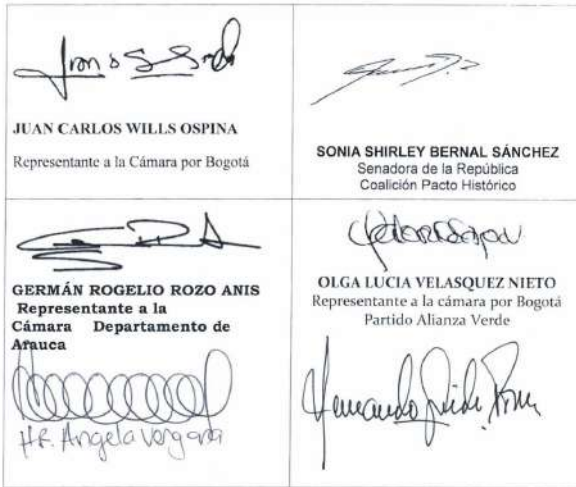 JUAN CARLOS WILLS OSPINA
Representante a la Cámara por Bogotá
SONIA SHIRLEY BERNAL SÁNCHEZ
Senadora de la República
Coalición Pacto Histórico
GERMÁN ROGELIO ROZO ANIS
Representante a la
Cámara Departamento de
Arauca
HR. Angela Vergara
OLGA LUCIA VELASQUEZ NIETO
Representante a la cámara por Bogotá
Partido Alianza Verde